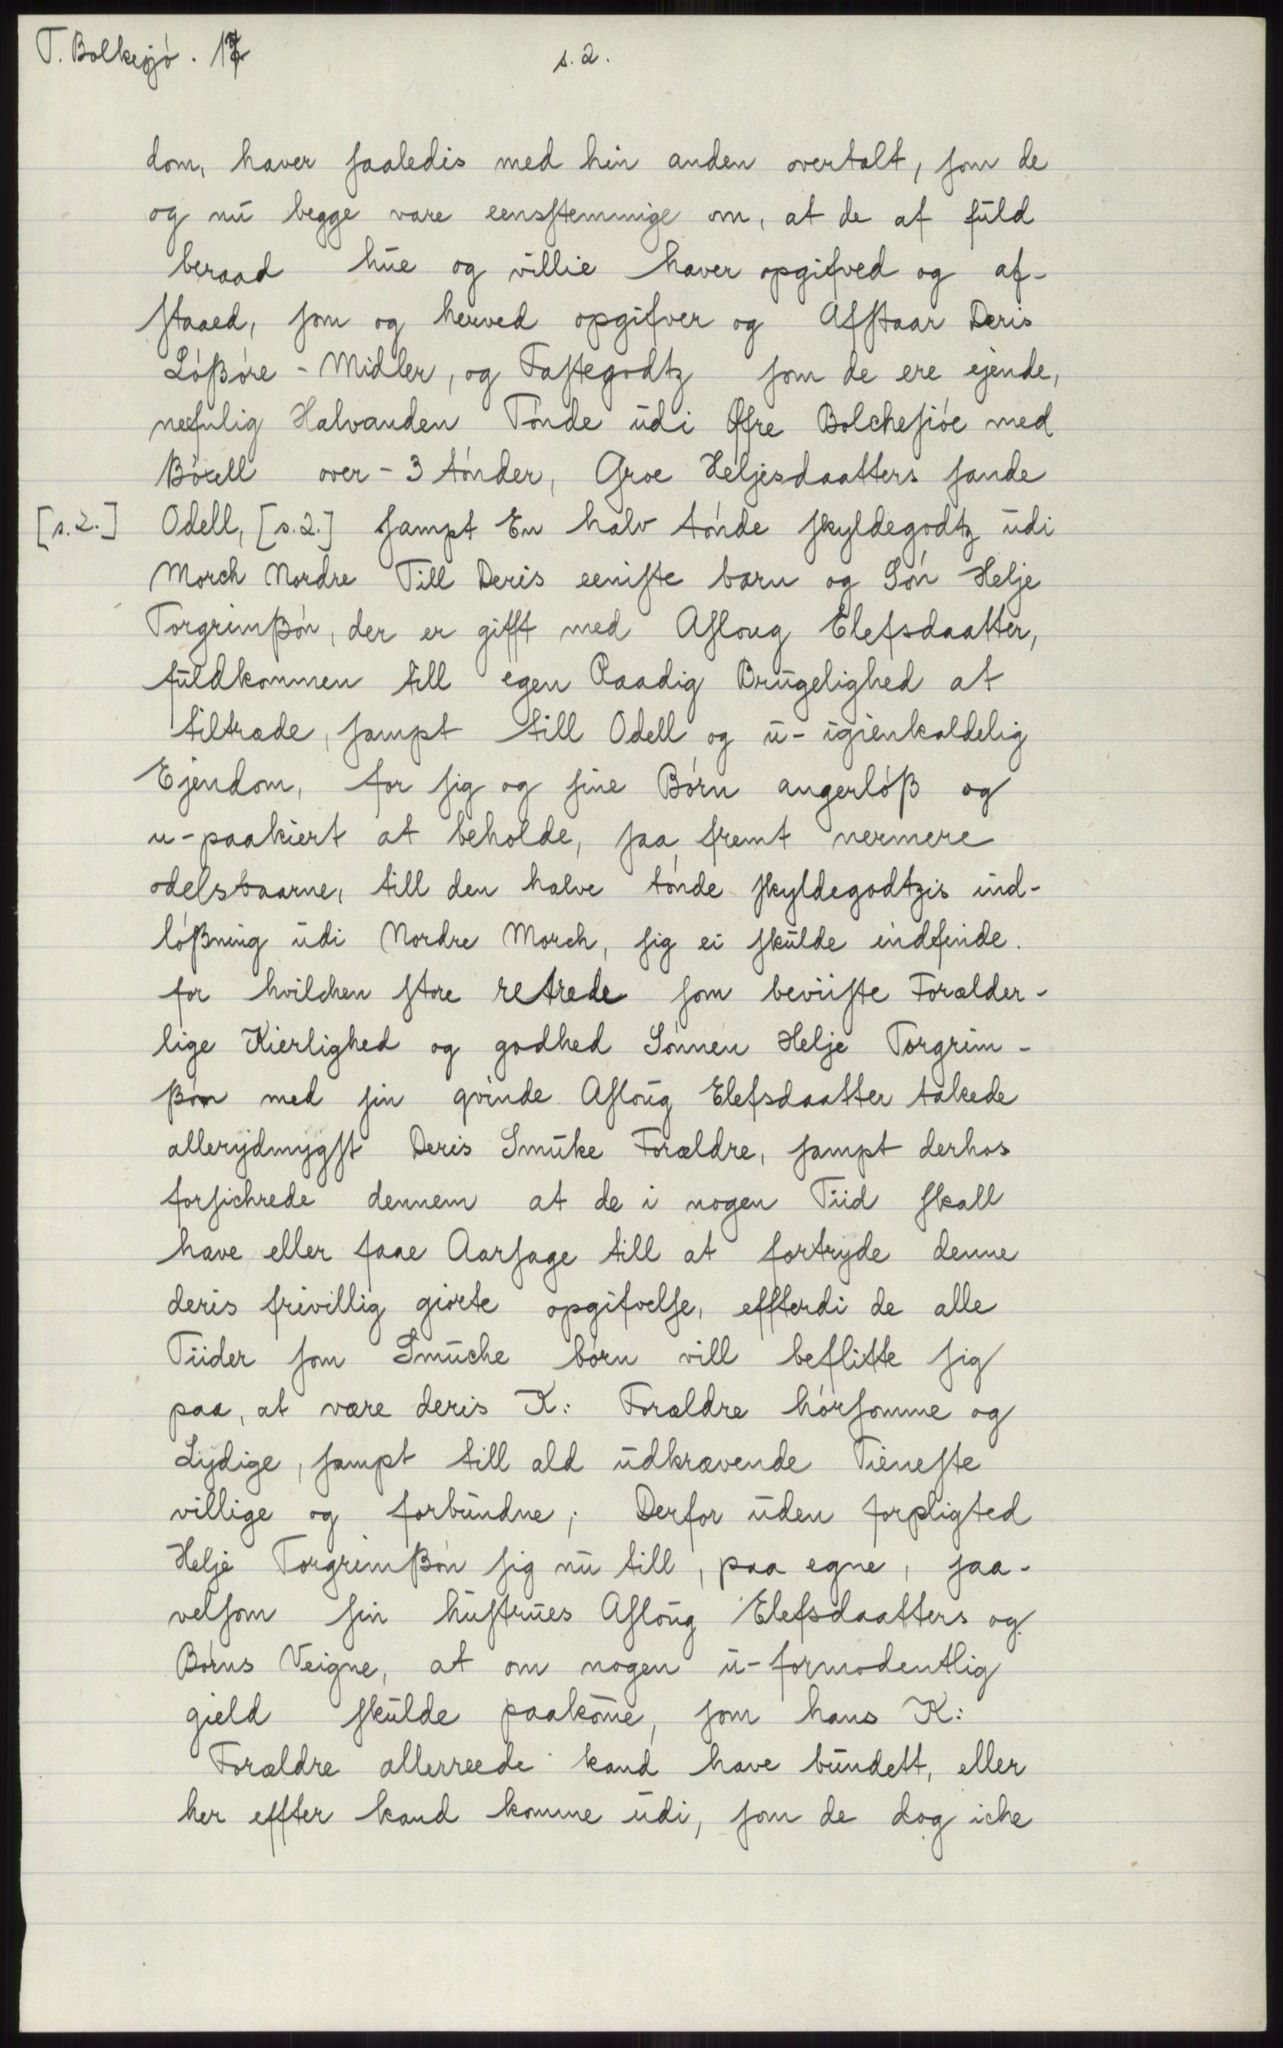 T. Bolkesjö. 17
s. 2.
dom, haver saaledis med hin anden overtalt, som de
og nu begge vare eenstemmige om, at de af fuld
beraad hue og villie haver opgifved og af-
staaed, som og herved opgifver og Afstaar Deris
Lóßóre - Midler, og Fastegodtz som de ere ejende,
nefnlig Halvanden Tónde udi Øfre Bolchesióe med
Bóxell over - 3 tónder, Groe Heljesdaatters sande
[s. 2.] Odell, [s. 2.] sampt En halv tónde skyldegodtz udi
Morch Nordre Till Deris eeniste barn og Són Helje
Torgrimßón, der er gifft med Asloug Elefsdaatter,
fuldkommen till egen Raadig Brugelighed at
tiltræde, sampt till Odell og u-igienkaldelig
Ejendom, for sig og sine Bórn angerlóß og
u-paakiert at beholde, saa fremt nermere
odelsbaarne, till den halve tónde skyldegodtzis ind-
lóßning udi Nordre Morch, sig ei skulde indfinde.
for hvilchen store retrede som beviiste Forælder-
lige Kierlighed og godhed Sónnen Helje Torgrim-
ßón med sin qvinde Asloug Elefsdaatter takede
allerydmygst Deris Smuke Forældre, sampt derhos
forsichrede dennem at de i nogen Tiid skall
have eller faae Aarsage till at fortryde denne
deris frivillig giorte opgifvelse, effterdi de alle
Tiider som Smuche bórn vill beflitte sig
paa, at være deris K: Forældre hórsomme og
Lydige, sampt till ald udkrævende Tieneste
villige og forbundne; Derfor uden forpligted
Helje Torgrimßón sig nu till, paa egne, saa-
velsom sin hustrues Asloug Elefsdaatters og
Bórns Veigne, at om nogen u-formodentlig
gield skulde paakom̄e, som hans K:
Forældre allerreede kand have bundett, eller
her effter kand komme udi, som de dog iche